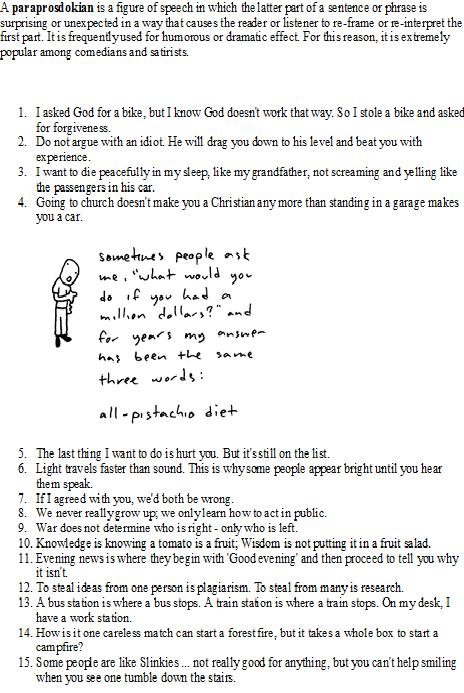 A paraprosdokian is a figure of speech in which the latter part of a sentence or phrase is
surprising or unexpected in a way that causes the reader or listener to re-frame or re-interpret the
first part. It is frequently used for humorous or dramatic effect. For this reason, it is extremely
popular among comedians and satirists.
1. I asked God for a bike, but I know God doesn't work that way. So I stole a bike and asked
for forgiveness.
2. Do not argue with an idiot. He will drag you down to his level and beat you with
experience.
3. I want to die peacefully in my sleep, like my grandfather, not screaming and yelling like
the passengers in his car.
4. Going to church doesn't make you a Christian any more than standing in a garage makes
you a car.
sometimes people ask
me, "what would you
do if you had a
million dollars?" and
for years my answer
has been the same
three words:
all-pistachio diet
5. The last thing I want to do is hurt you. But it's still on the list.
6. Light travels faster than sound. This is why some people appear bright until you hear
them speak.
7. If I agreed with you, we'd both be wrong.
8. We never really grow up; we only learn how to act in public.
9. War does not determine who is right - only who is left.
10. Knowledge is knowing a tomato is a fruit; Wisdom is not putting it in a fruit salad.
11. Evening news is where they begin with 'Good evening' and then proceed to tell you why
it isn't.
12. To steal ideas from one person is plagiarism. To steal from many is research.
13. A bus station is where a bus stops. A train station is where a train stops. On my desk, I
have a work station.
14. How is it one careless match can start a forest fire, but it takes a whole box to start a
campfire?
15. Some people are like Slinkies ... not really good for anything, but you can't help smiling
when you see one tumble down the stairs.